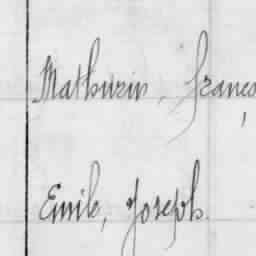 Mathurin, franço
Emile, Joseph.